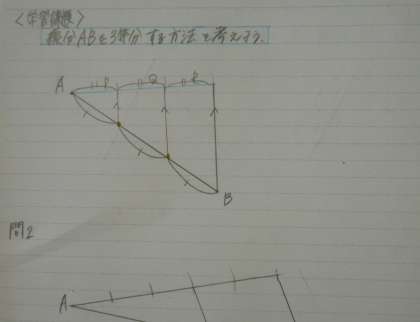 〈学習課題〉
線分ABを3等分する方法を考えよう.
A P Q R
B
問2
A